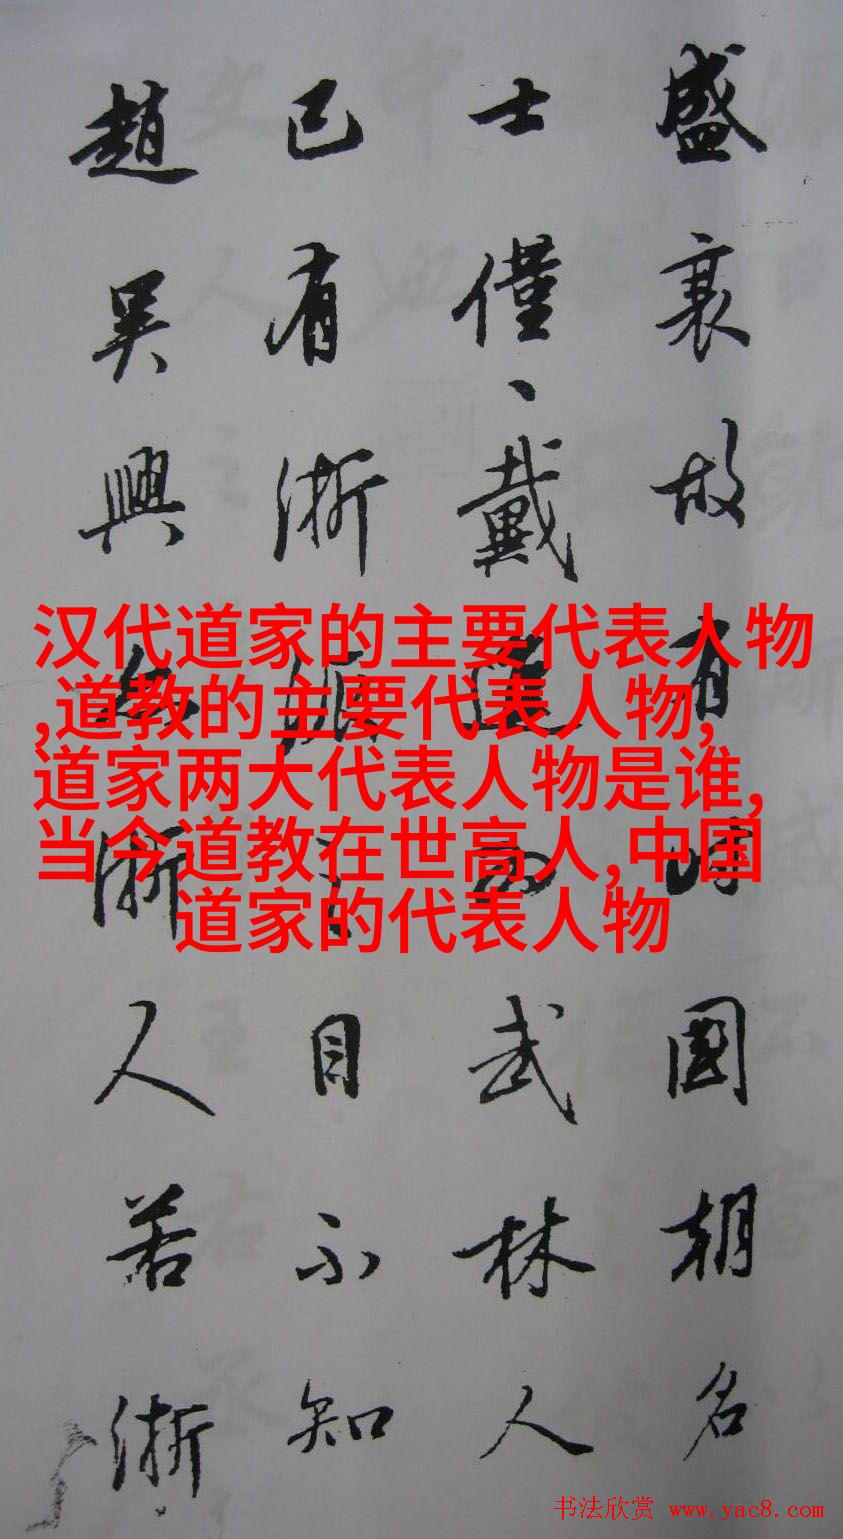 盛衰故有時國朝名
士僅、戴進武林人
已有浙派之目不知
趙吳興亦浙人若浙
汉代道家的主要代表人物
,道教的主要代表人物,
道家两大代表人物是谁,
当今道教在世高人,中国
道家的代表人物
书法欣赏 www.yac8.com